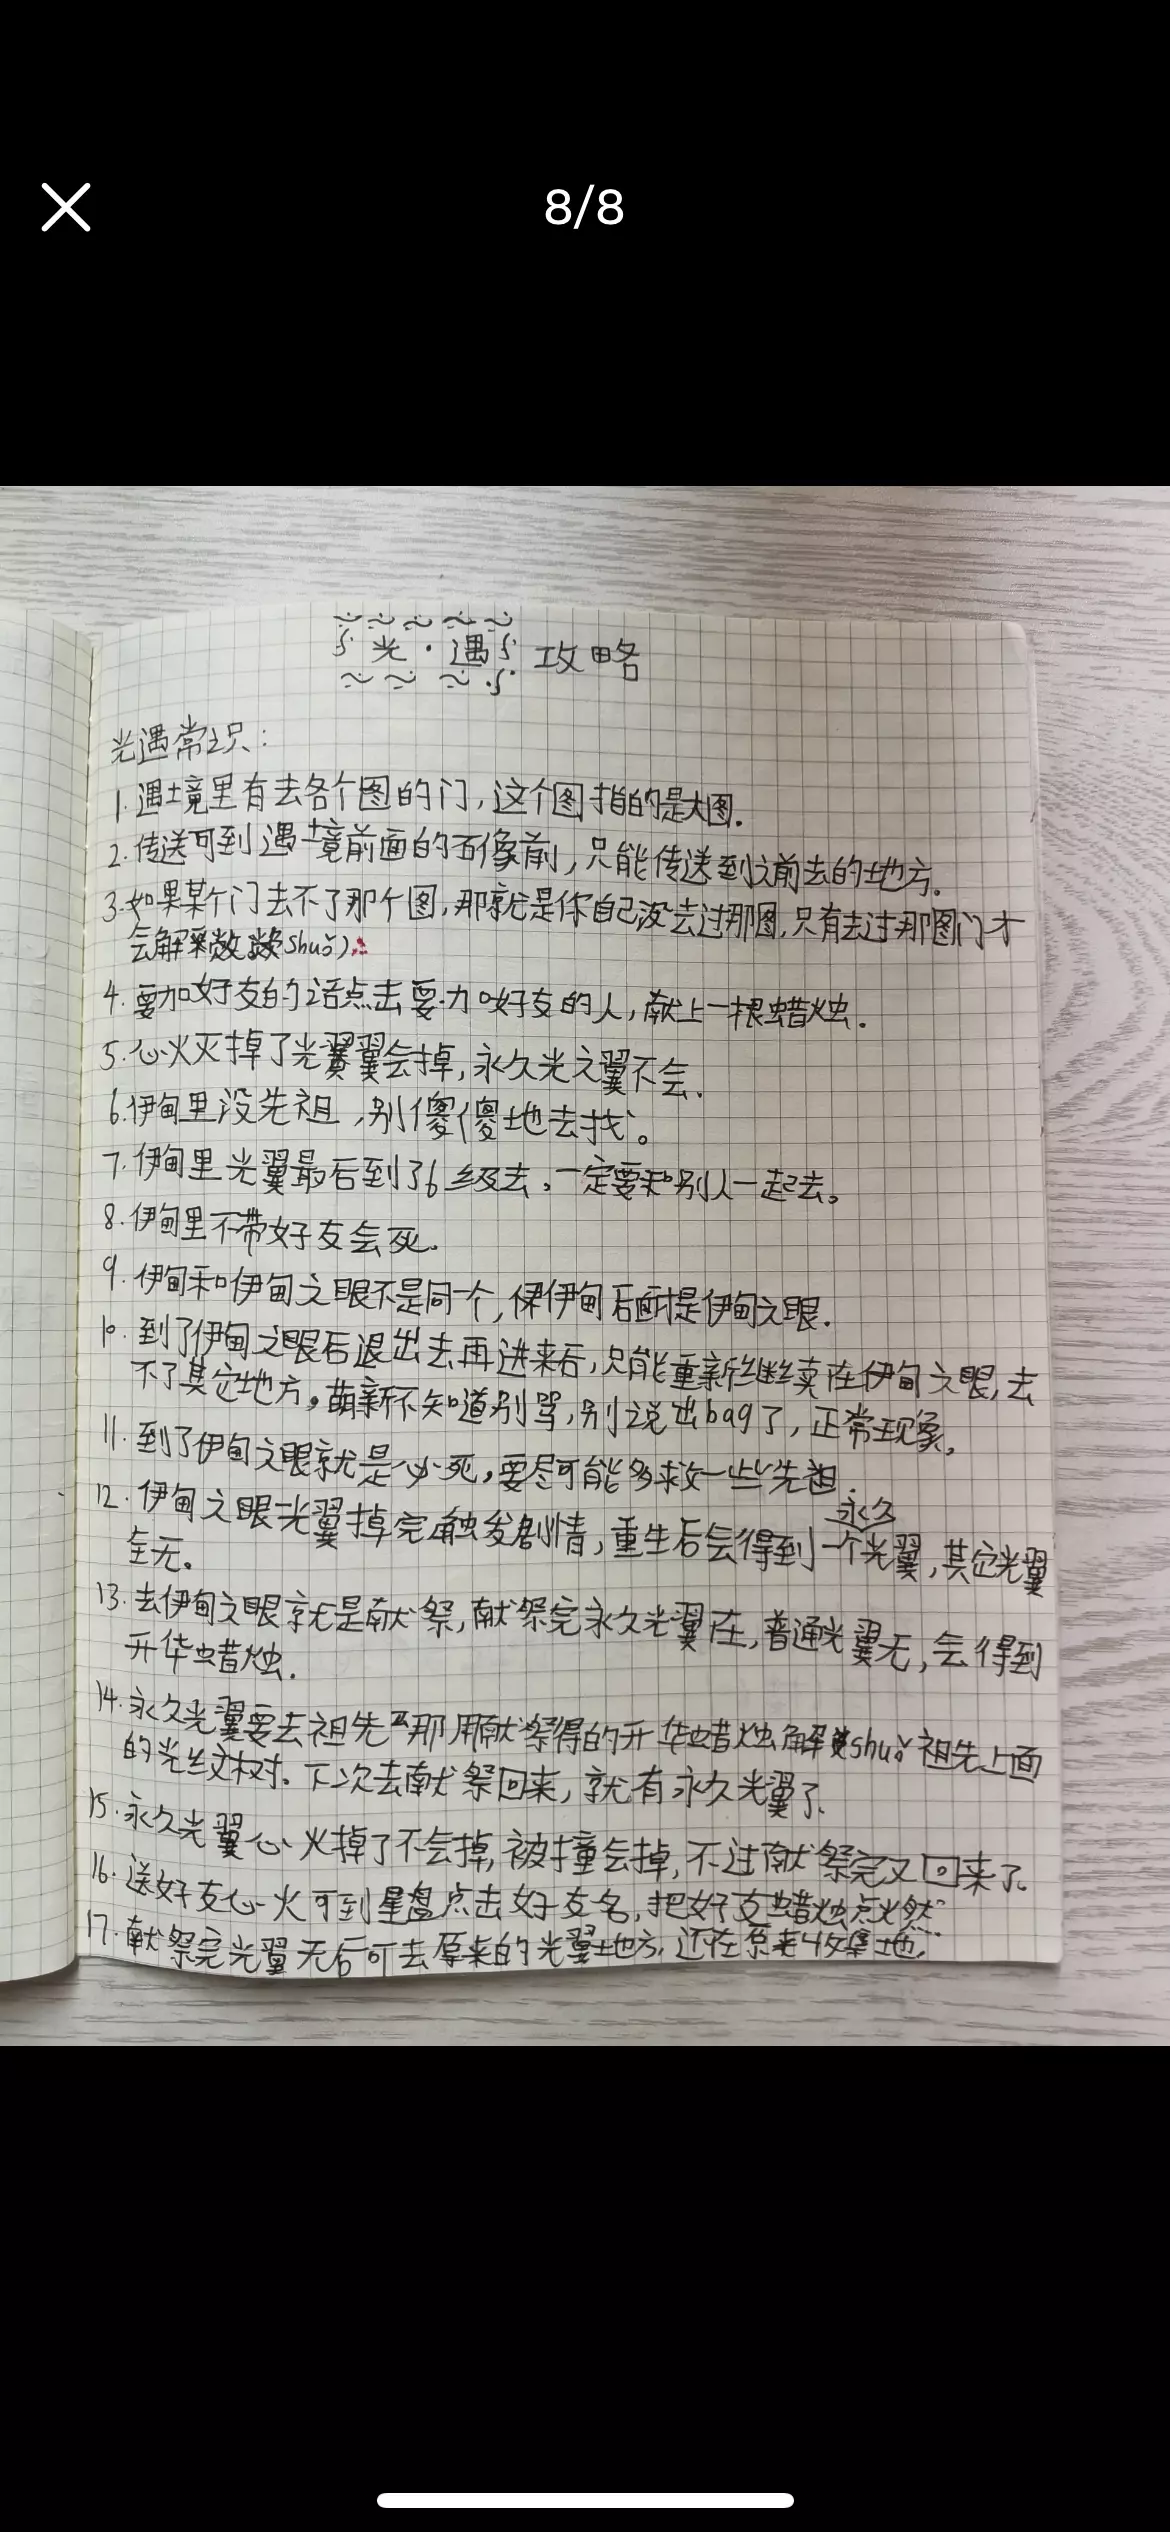 8/8
光·遇 攻略
光遇常识:
1.遇境里有去各个图的门,这个图指的是大图.
2.传送可到遇境前面的石像前,只能传送到之前去的地方.
3.如果某个门去不了那个图,那就是你自己没去过那图,只有去过那图门才
会解 shuǒ)
4.要加好友的话点击要加好友的人,献上一根蜡烛.
5.心火灭掉了光翼翼会掉,永久光之翼不会.
6.伊甸里没先祖,别傻傻地去找。
7.伊甸里光翼最后到了6级去。一定要和别人一起去。
8.伊甸里不带好友会死.
9.伊甸和伊甸之眼不是同一个,伊甸后面才是伊甸之眼.
10.到了伊甸之眼后退出去再进来后,只能重新继续在伊甸之眼,去
不了其它地方。萌新不知道别骂,别说出bag了,正常现象。
11.到了伊甸之眼就是必死,要尽可能多救一些先祖.
永久
12.伊甸之眼光翼掉完触发剧情,重生后会得到一个光翼,其它光翼
全无。
13.去伊甸之眼就是献祭,献祭完永久光翼在,普通光翼无,会得到
升华蜡烛.
14.永久光翼要去祖先那用献祭得的升华蜡烛解shuǒ祖先上面
的光纹树。下次去献祭回来,就有永久光翼了.
15.永久光翼心火掉了不会掉,被撞会掉,不过献祭完又回来了.
16.送好友心火可到星盘点击好友名,把好友蜡烛点火然
17.献祭完光翼无后可去原来的光翼地方,还在原来收集地.